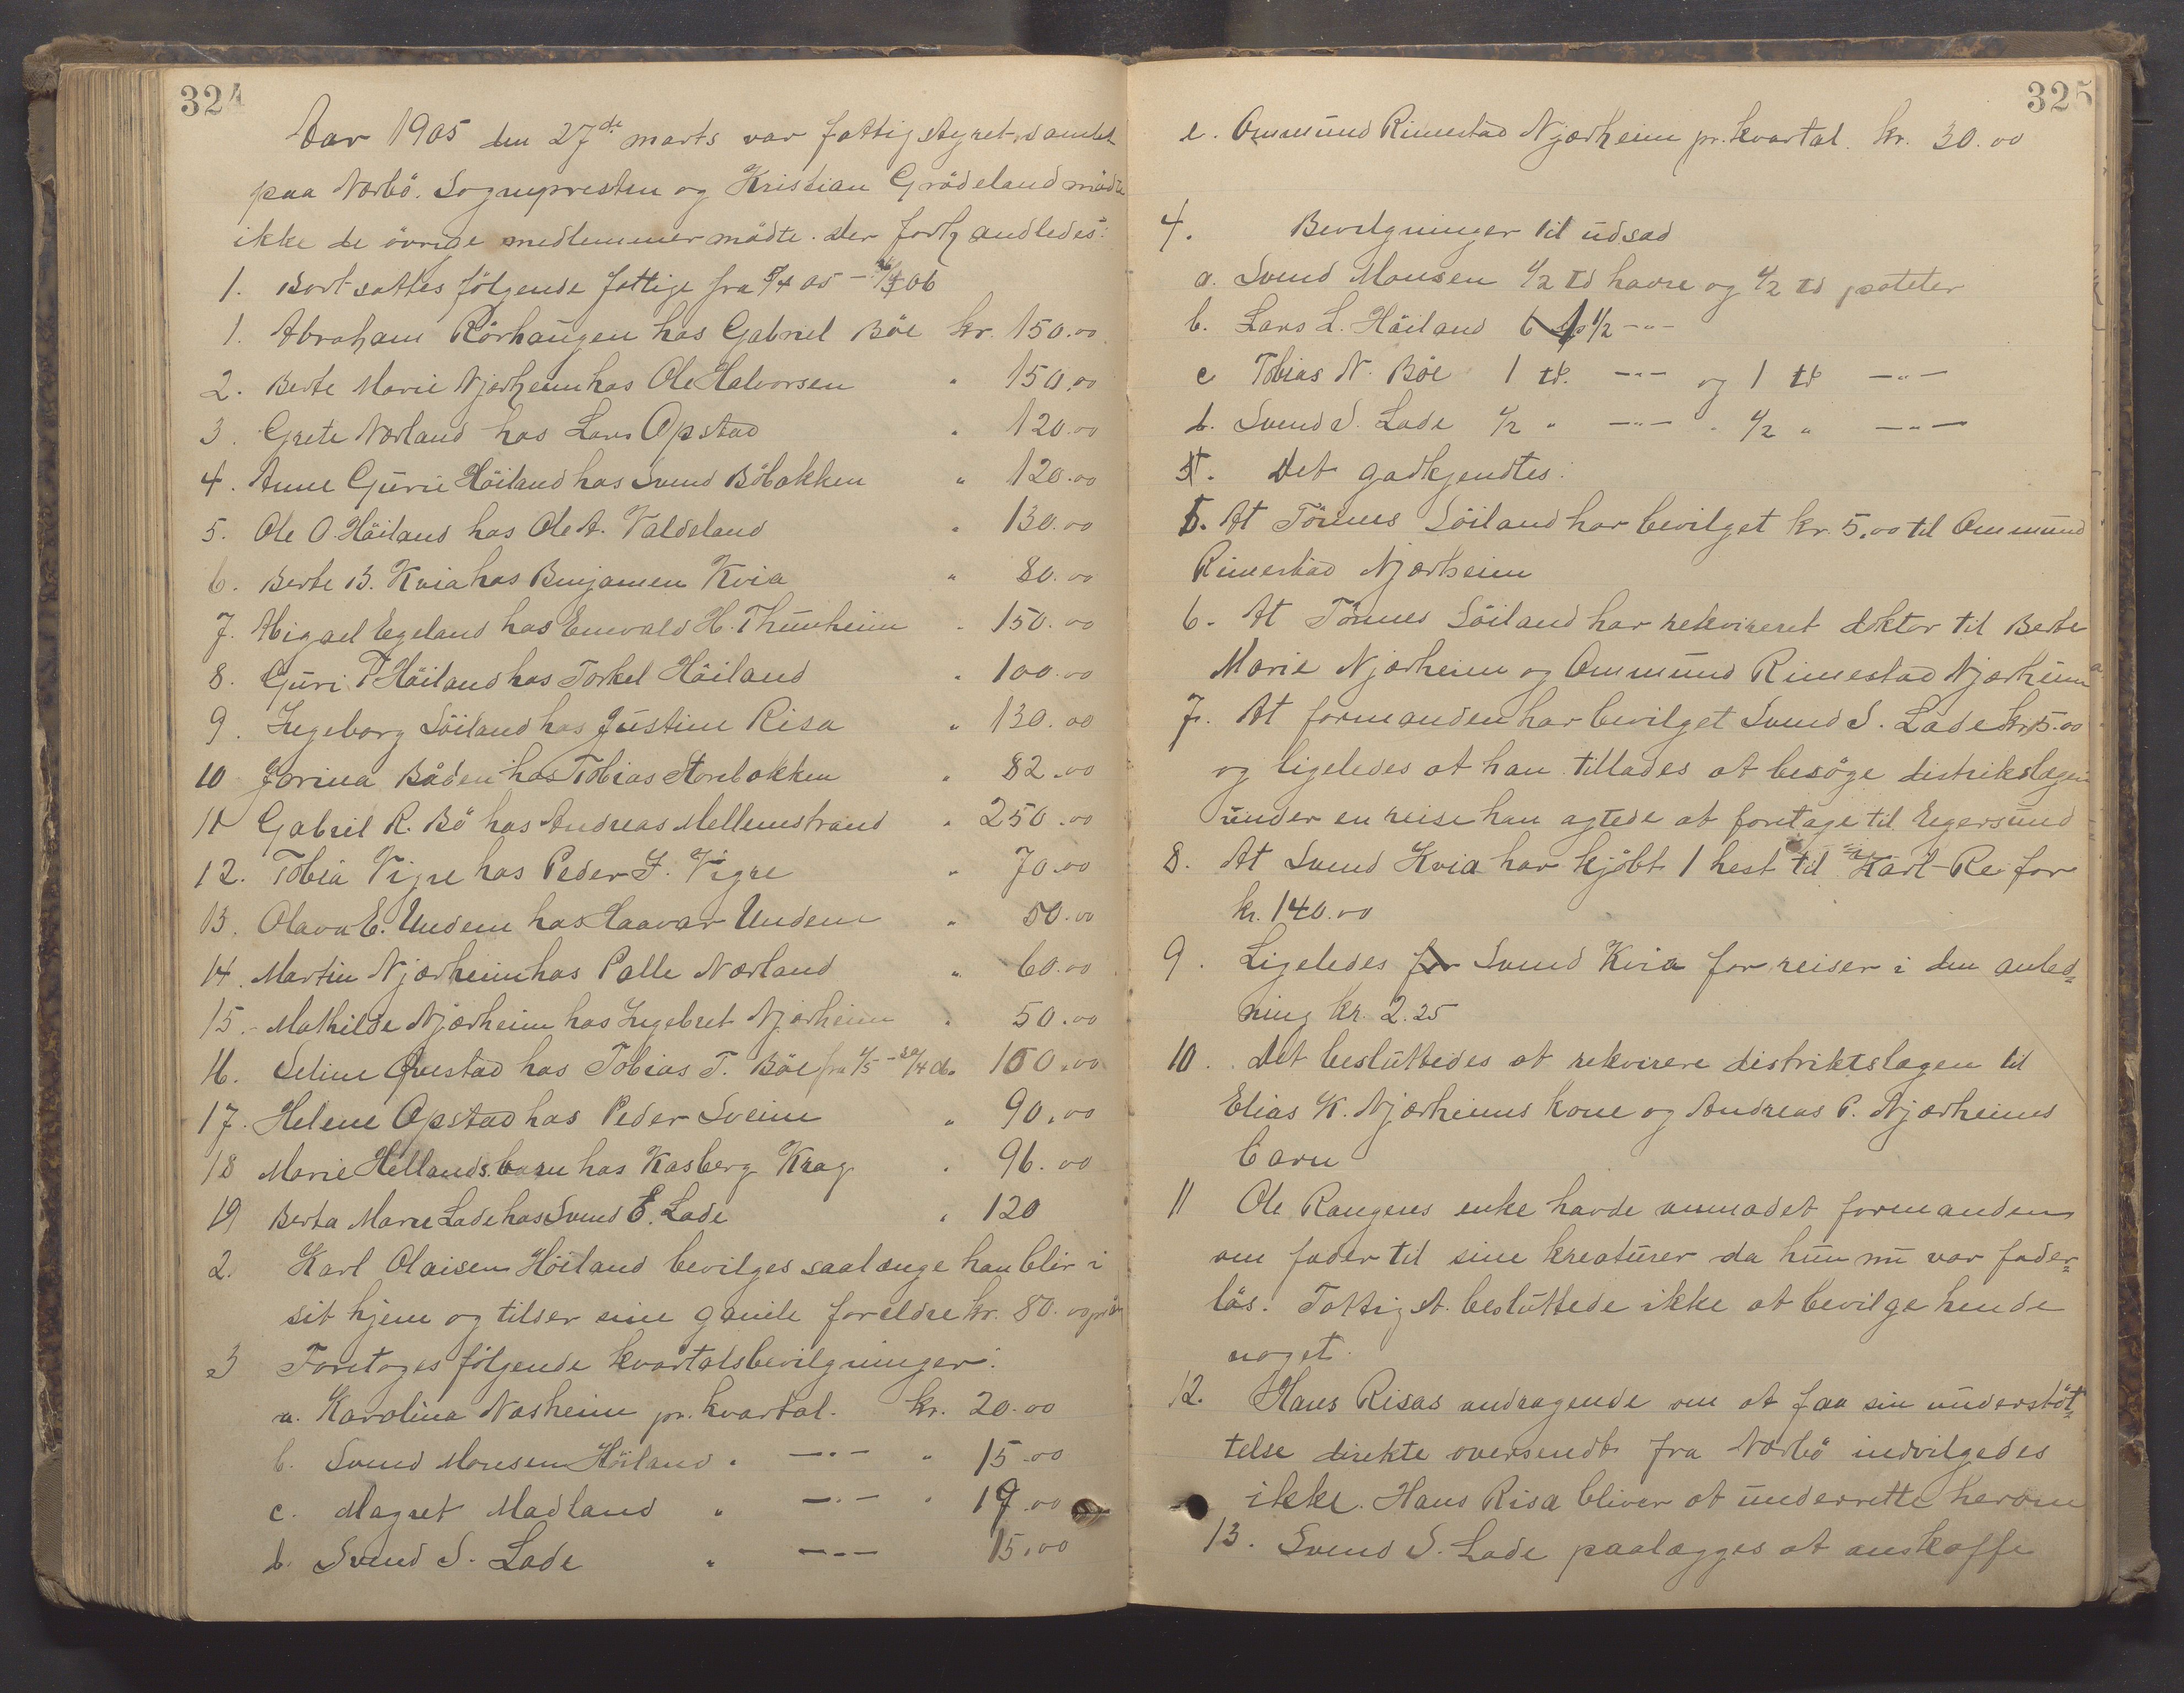 324
Aar 1905 den 27de marts var fattigstyret samlet
paa Nærbö. Sognepresten og Kristian Grödeland mödte
ikke de övrige medlemmer mödte. Der forhandledes:
1. Bortsattes fölgende fattige fra 05 - 06
1. Abraham Rörhaugen hos Gabriel Böe kr. 150.00
2. Berte Marie Njærheim hos Ole Halvorsen " 150.00
3. Grete Nærland hos Lars Opstad " 120.00
4. Anne Gurie Höiland hos Svend Böbakken " 120.00
5. Ole O. Höiland hos Ole A. Valdeland " 130.00
6. Berte B. Kvia hos Benjamen Kvia " 80.00
7. Abigael Egeland hos Enevald H. Thunheim " 150.00
8. Guri P Höiland hos Torkel Höiland " 100.00
9. Ingeborg Söiland hos Justine Risa " 130.00
10 Jorina Båden hos Tobias Storebakken " 82.00
11 Gabriel R. Bö hos Andreas Mellemstrand " 250.00
12. Tobia Vigre hos Peder J. Vigre " 70.00
13. Olava E. Undem hos Haavar Undem " 50.00
14. Martin Njærheim hos Palle Nærland " 60.00
15. Mathilde Njærheim hos Ingebret Njærheim " 50.00
16. Seline Qvestad hos Tobias T. Böe fra 1/5 - 30/4 06 100.00
17. Helene Opstad hos Peder Sveim " 90.00
18 Marie Hellands barn hos Kasberg Krag " 96.00
19 Berta Marie Lade hos Svend E. Lade " 120
2. Karl Olaisen Höiland bevilges saalænge han blir i
sit hjem og tilser sine gamle forældre kr. 80.00 pr år
3 Foretoges fölgende kvartalsbevilgninger:
a. Karolina Nasheim pr. kvartal. kr. 20.00
b. Svend Monsen Höiland " —"— " 15.00
c. Magret Madland " —"— " 19.00
d. Svend S. Lade " —"— 15.00
325
e. Ommund Rimestad Njærheim pr. kvartal. kr. 30.00
4. Bevilgninger til udsæd
a. Svend Monsen 1/2 td havre og 1/2 td poteter
b. Lars L. Höiland 1/2 —"—
c Tobias N. Böe 1 td. —"— og 1 td —"—
d. Svend S. Lade 1/2 " —"— " 1/2 " —"—
Det godkjendtes:
5. At Tönnes Söiland har bevilget kr. 5.00 til Ommund
Rimestad Njærheim
6. At Tönnes Söiland har rekvireret doktor til Berte
Marie Njærheim og Ommund Rimestad Njærheim
7. At formanden har bevilget Svend S. Lade kr. 5.00
og ligeledes at han tillades at besöge distrikslægen
under en reise han agtede at foretage til Egersund
8. At Svend Kvia har kjöbt 1 hest til Karl Re for
kr. 140.00
9. Ligeledes for Svend Kvia for reiser i den anled=
ning kr. 2.25
10. Det besluttedes at rekvirere distriktslægen til
Elias K. Njærheims kone og Andreas P. Njærheims
barn
11 Ole Raugens enke havde anmodet formanden
om foder til sine kreaturer da hun nu var foder=
lös. Fattigst. besluttede ikke at bevilge hende
noget.
12. Hans Risas andragende om at faa sin understöt=
telse direkte oversendt fra Nærbö indvilgedes
ikke. Hans Risa bliver at underrette herom
13. Svend S. Lade paalægges at anskaffe